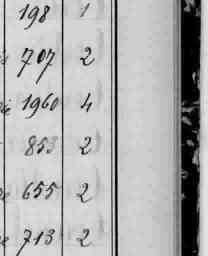 198 1
707 2
1960 4
853 2
655 2
713 2